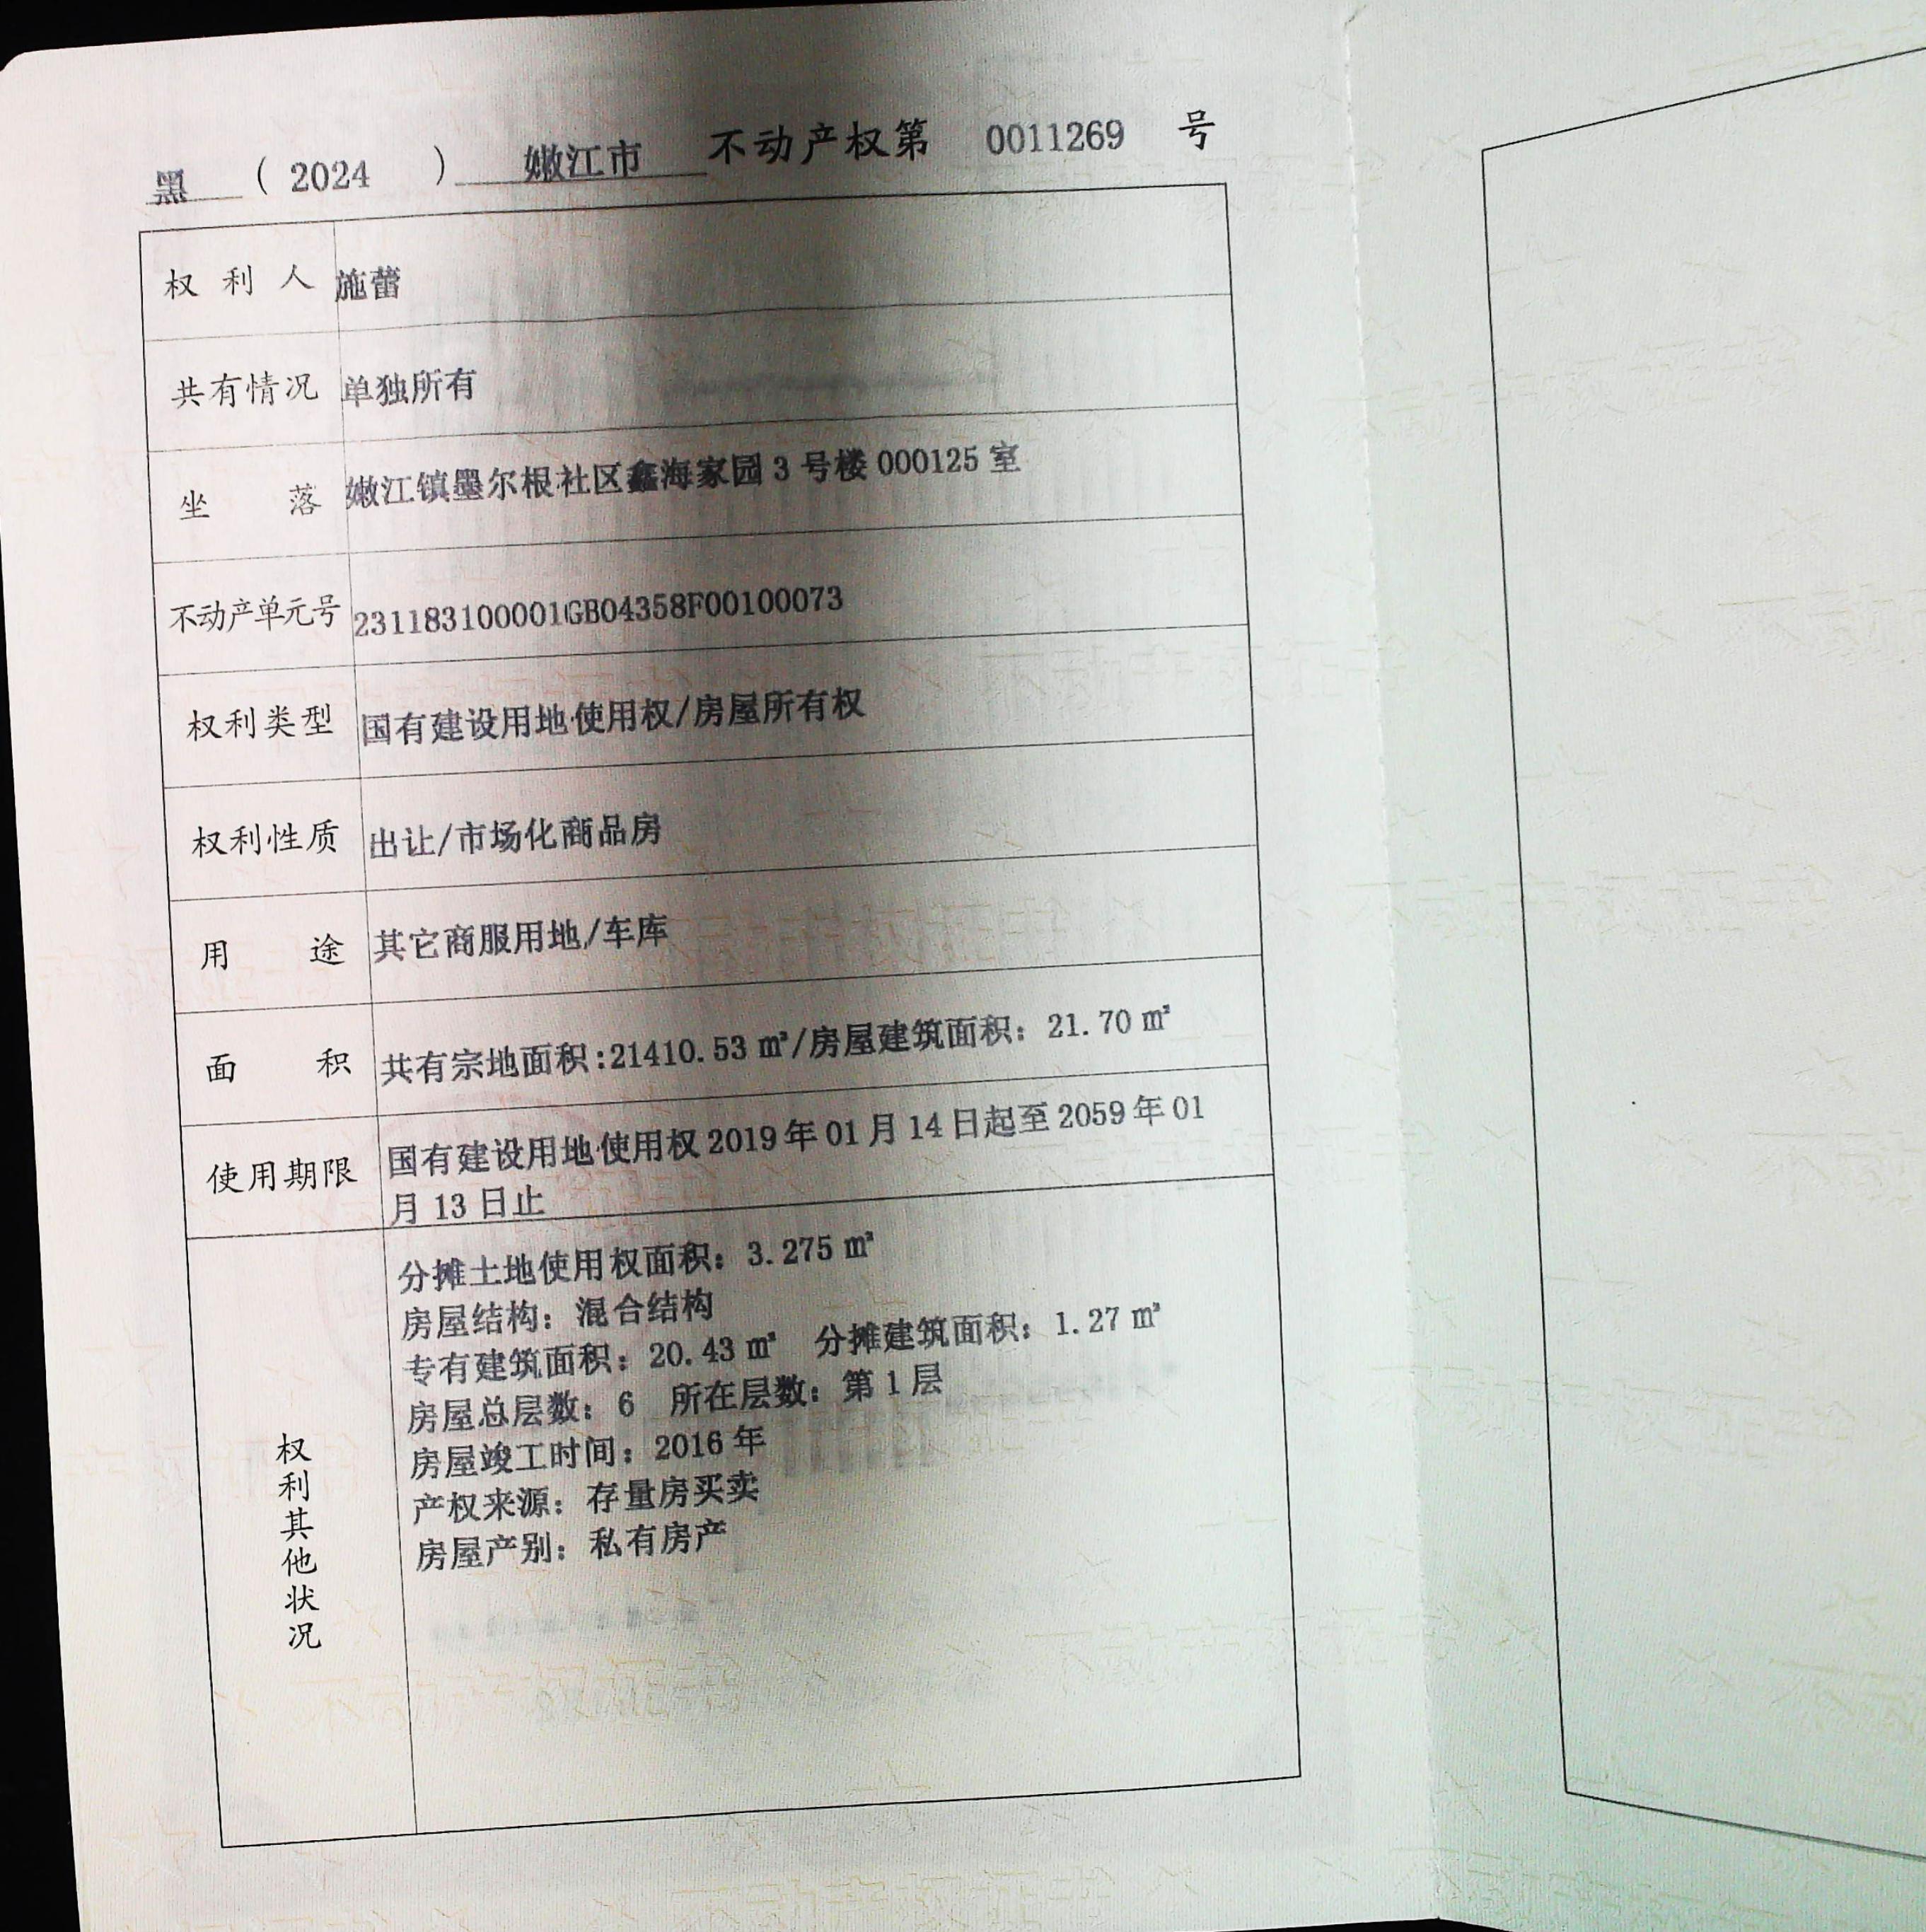 黑 (2024) 嫩江市 不动产权第 0011269 号
权利人 施蕾
共有情况 单独所有
坐落 嫩江镇墨尔根社区鑫海家园3号楼000125室
不动产单元号 231183100001GB04358F00100073
权利类型 国有建设用地使用权/房屋所有权
权利性质 出让/市场化商品房
用途 其它商服用地/车库
面积 共有宗地面积:21410.53㎡/房屋建筑面积：21.70㎡
使用期限 国有建设用地使用权2019年01月14日起至2059年01
月13日止
权利其他状况
分摊土地使用权面积：3.275㎡
房屋结构：混合结构
专有建筑面积：20.43㎡ 分摊建筑面积：1.27㎡
房屋总层数：6 所在层数：第1层
房屋竣工时间：2016年
产权来源：存量房买卖
房屋产别：私有房产